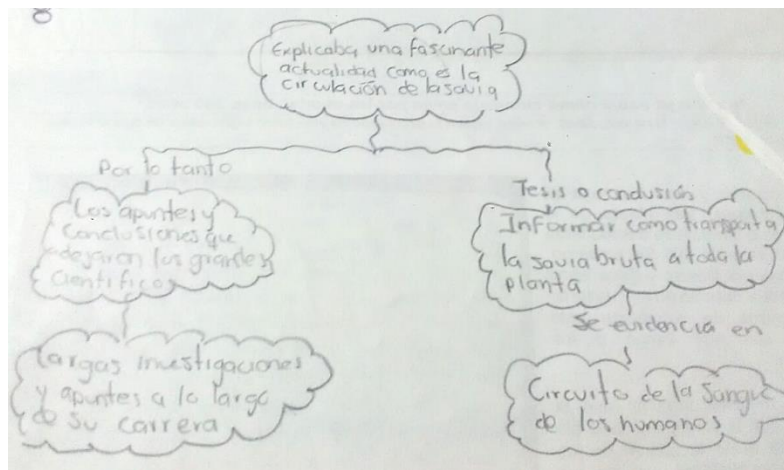 Explicaba una fascinante
actualidad como es la
circulación de la savia
Por lo tanto
Los apuntes y
conclusiones que
dejaron los grandes
científicos
Largas investigaciones
y apuntes a lo largo
de su carrera
Tesis o conclusión
Informar como transporta
la savia bruta a toda la
planta
Se evidencia en
Circuito de la sangre
de los humanos